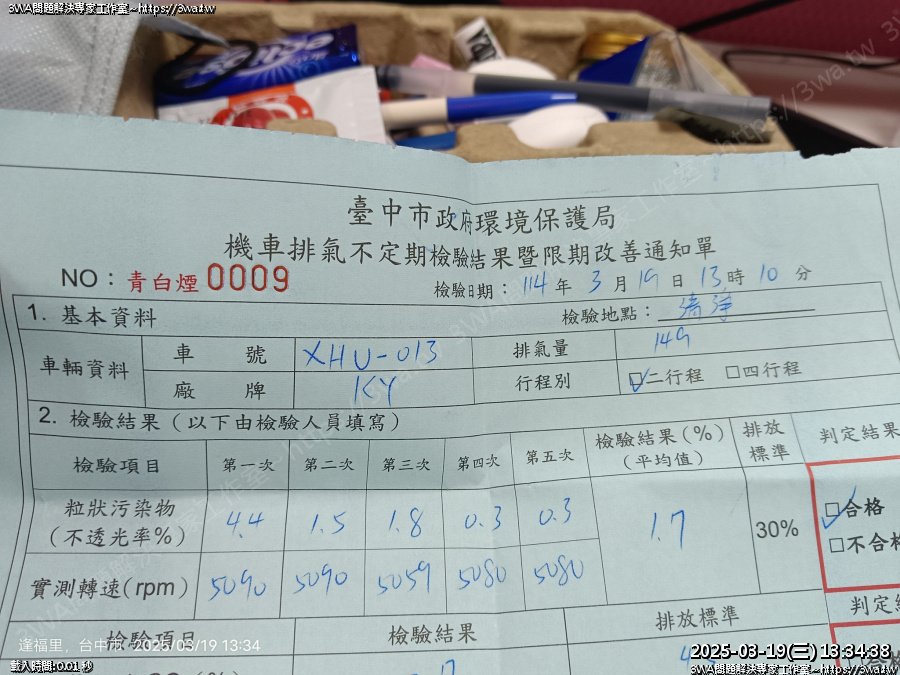 3WA問題解決專家工作室~https://3wa.tw
臺中市政府環境保護局
機車排氣不定期檢驗結果暨限期改善通知單
NO：青白煙 0009
檢驗日期：114年 3月 19日 13時 10分
1. 基本資料 檢驗地點：
車輛資料 車號 XHU-013 排氣量 149
廠牌 KY 行程別 ☑二行程 □四行程
2. 檢驗結果（以下由檢驗人員填寫）
檢驗項目 第一次 第二次 第三次 第四次 第五次 檢驗結果(%)(平均值) 排放標準 判定結果
粒狀污染物(不透光率%) 4.4 1.5 1.8 0.3 0.3 1.7 30% ☑合格 □不合格
實測轉速(rpm) 5090 5090 5059 5080 5080
檢驗項目 檢驗結果 排放標準 判定結
逢福里，台中市 2025/03/19 13:34
載入時間:0.01 秒
2025-03-19(三) 13:34:38
3WA問題解決專家工作室~https://3wa.tw